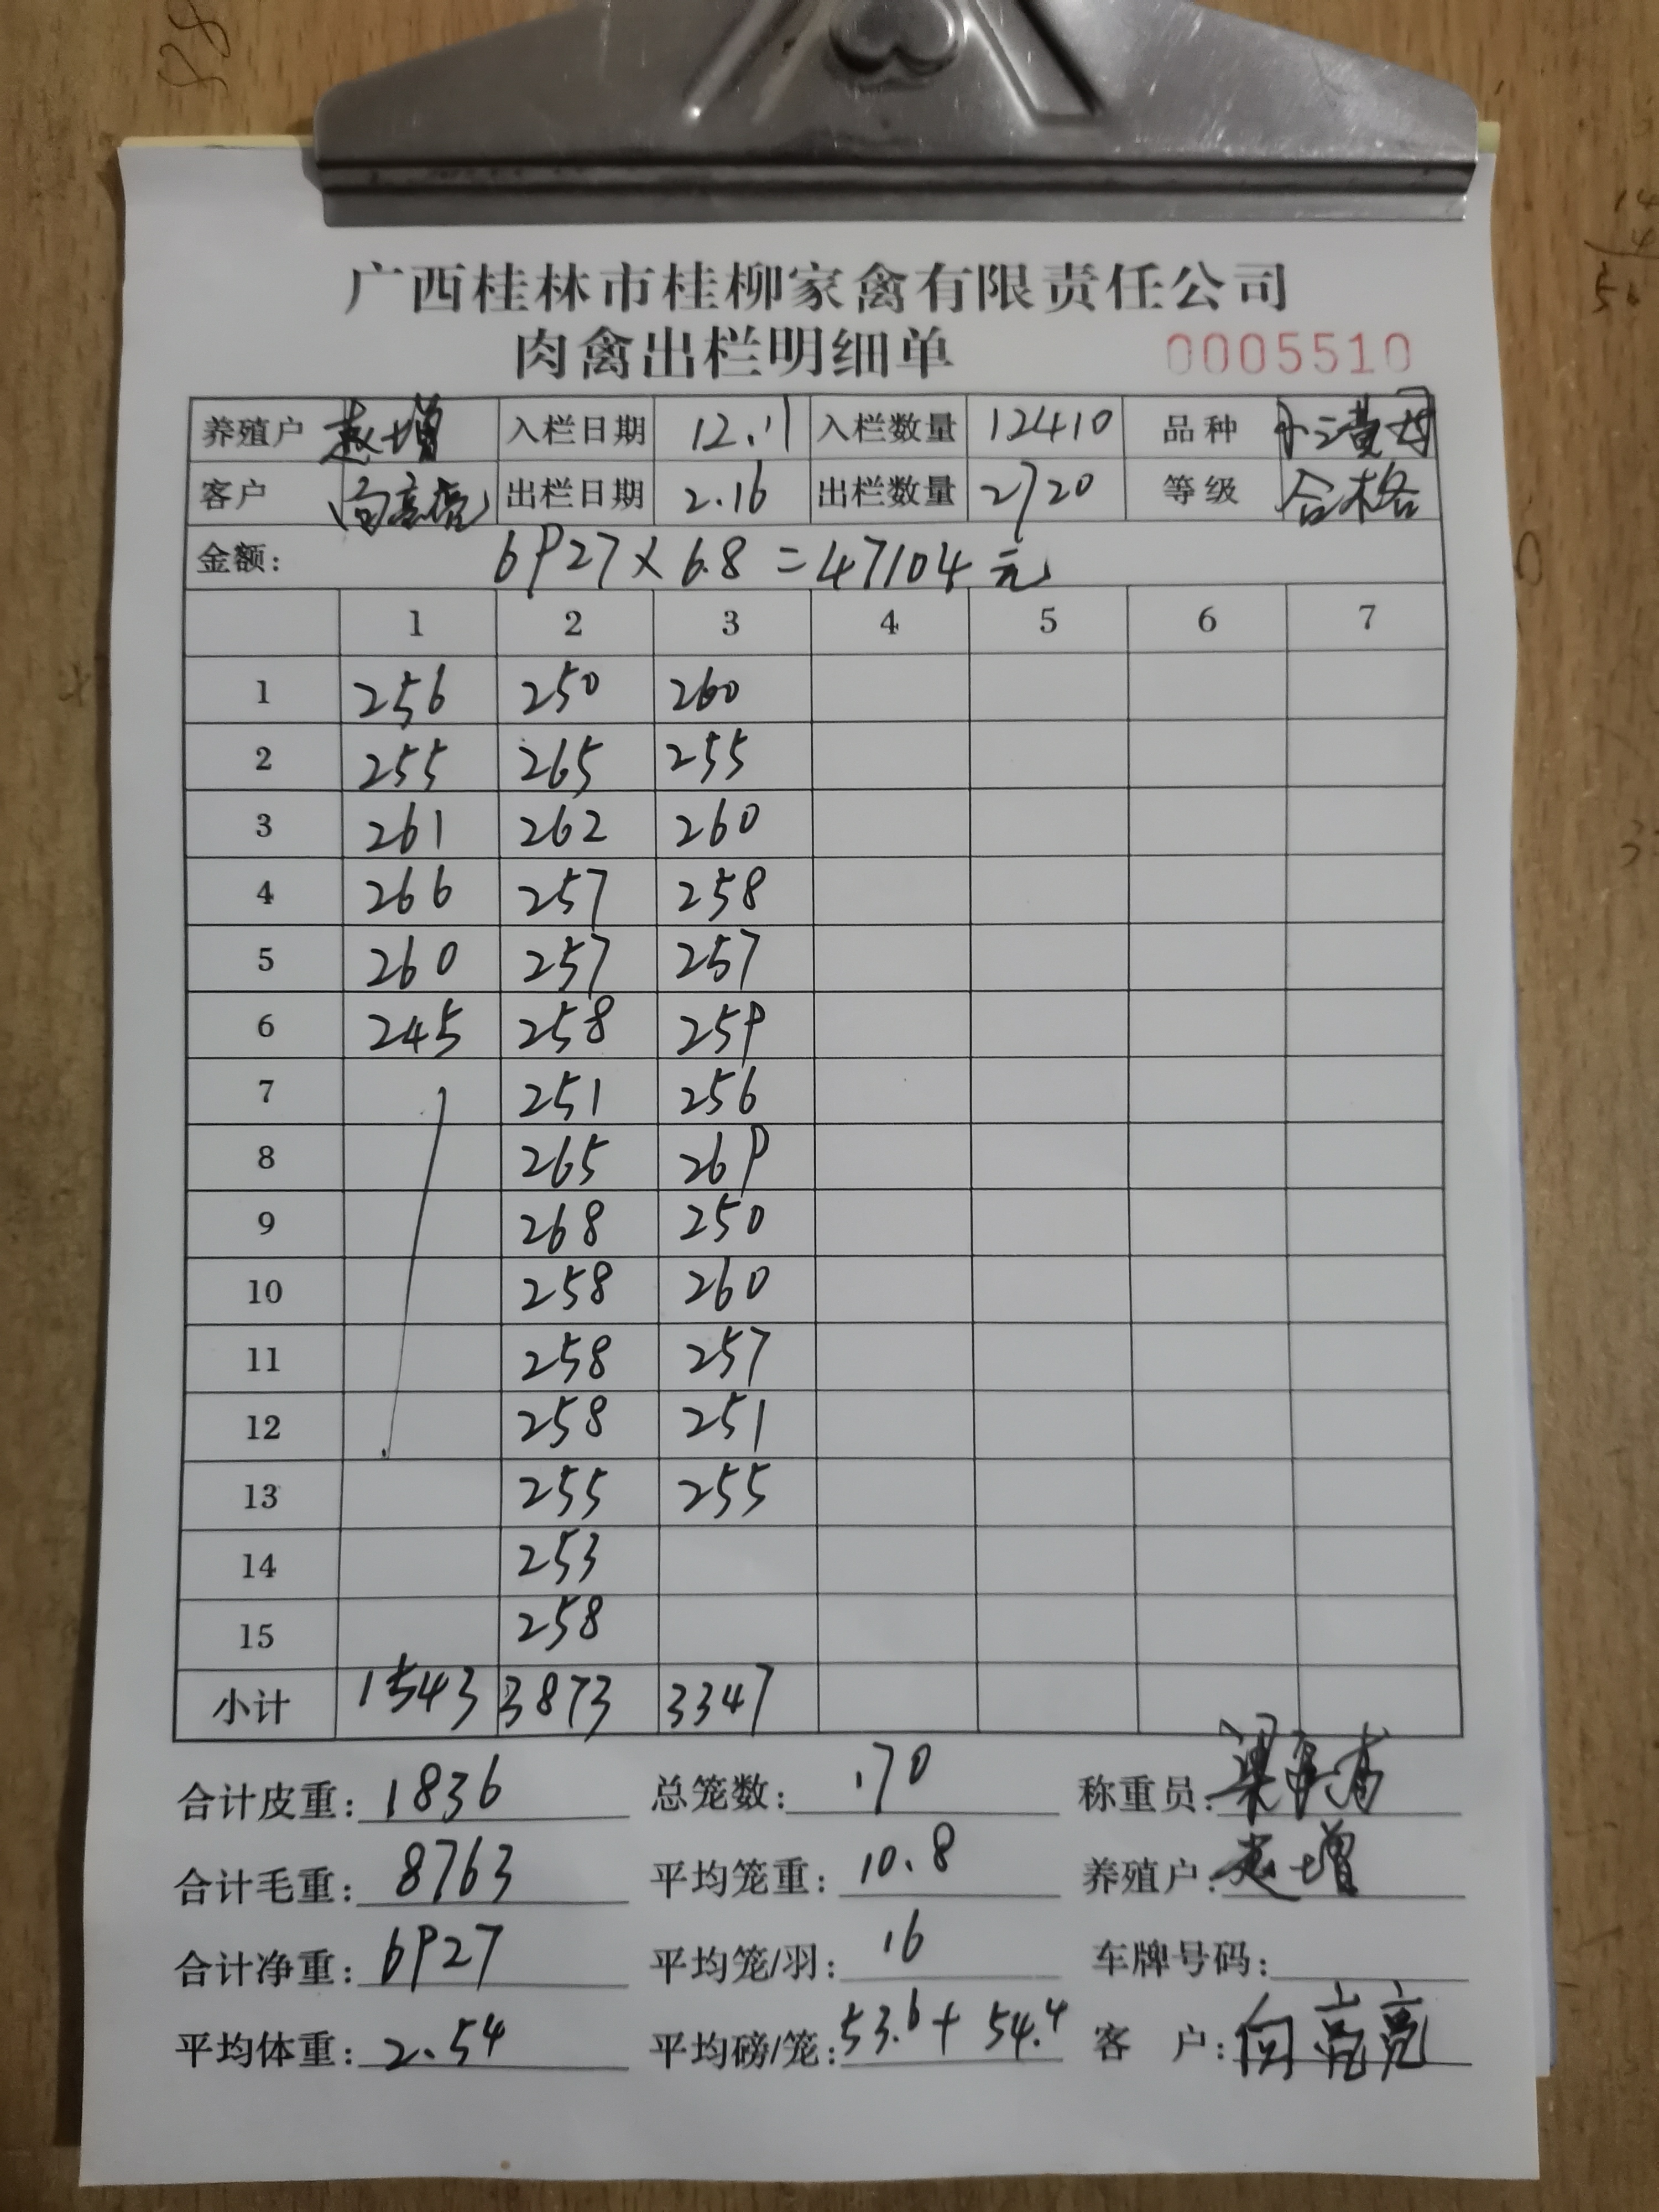 广西桂林市桂柳家禽有限责任公司
肉禽出栏明细单 0005510
养殖户 赵增 入栏日期 12.11 入栏数量 12410 品种 小三黄母
客户 向亮亮 出栏日期 2.16 出栏数量 2720 等级 合格
金额: 6927×6.8=47104元
1 2 3 4 5 6 7
1 256 250 260
2 255 265 255
3 261 262 260
4 266 257 258
5 260 257 257
6 245 258 259
7 251 256
8 265 269
9 268 250
10 258 260
11 258 257
12 258 251
13 255 255
14 253
15 258
小计 1543 3873 3347
合计皮重: 1836 总笼数: 170 称重员:
合计毛重: 8763 平均笼重: 10.8 养殖户: 赵增
合计净重: 6927 平均笼/羽: 16 车牌号码:
平均体重: 2.54 平均磅/笼: 53.6+54.4 客户: 向亮亮